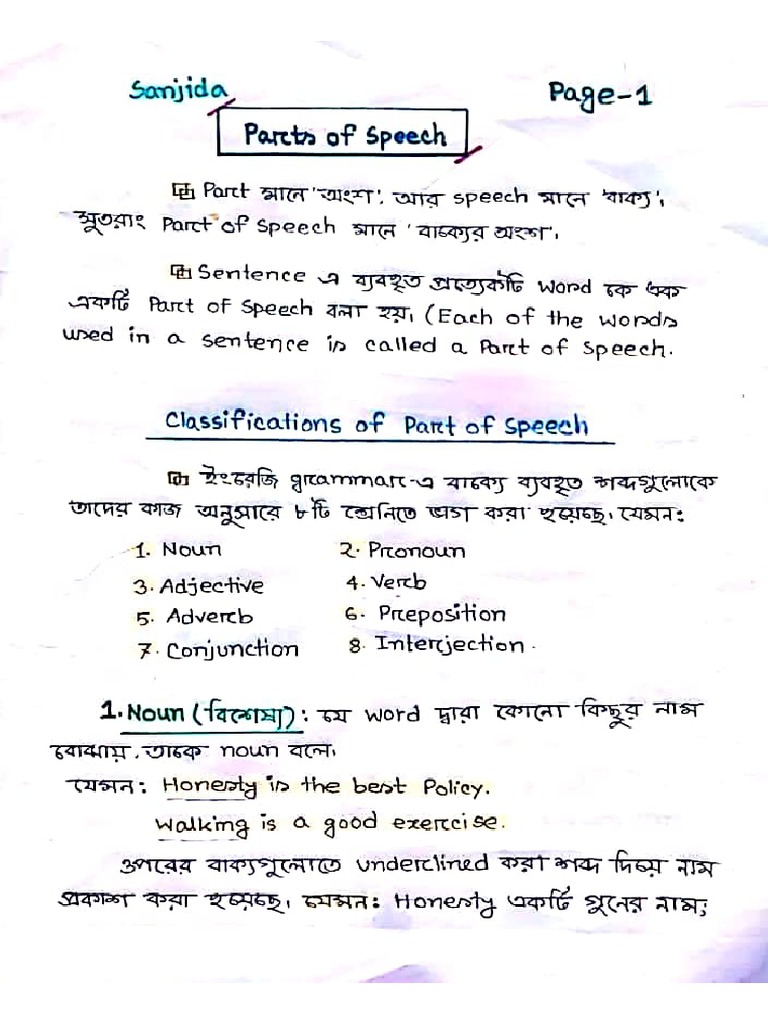 Sanjida Page-1
Parts of Speech
Part মানে 'অংশ', আর speech মানে 'বাক্য'।
সুতরাং Part of Speech মানে 'বাক্যের অংশ'।
Sentence এ ব্যবহৃত প্রত্যেকটি word কে এক
একটি Part of Speech বলা হয়। (Each of the words
used in a sentence is called a Part of Speech.
Classifications of Part of Speech
ইংরেজি grammar-এ বাক্যে ব্যবহৃত শব্দগুলোকে
তাদের কাজ অনুসারে ৮টি শ্রেনিতে ভাগ করা হয়েছে। যেমন:
1. Noun 2. Pronoun
3. Adjective 4. Verb
5. Adverb 6. Preposition
7. Conjunction 8. Interjection.
1. Noun (বিশেষ্য): যে word দ্বারা কোনো কিছুর নাম
বোঝায়, তাকে noun বলে।
যেমন: Honesty is the best Policy.
Walking is a good exercise.
উপরের বাক্যগুলোতে underlined করা শব্দ দিয়ে নাম
প্রকাশ করা হয়েছে। যেমন: Honesty একটি গুনের নাম;